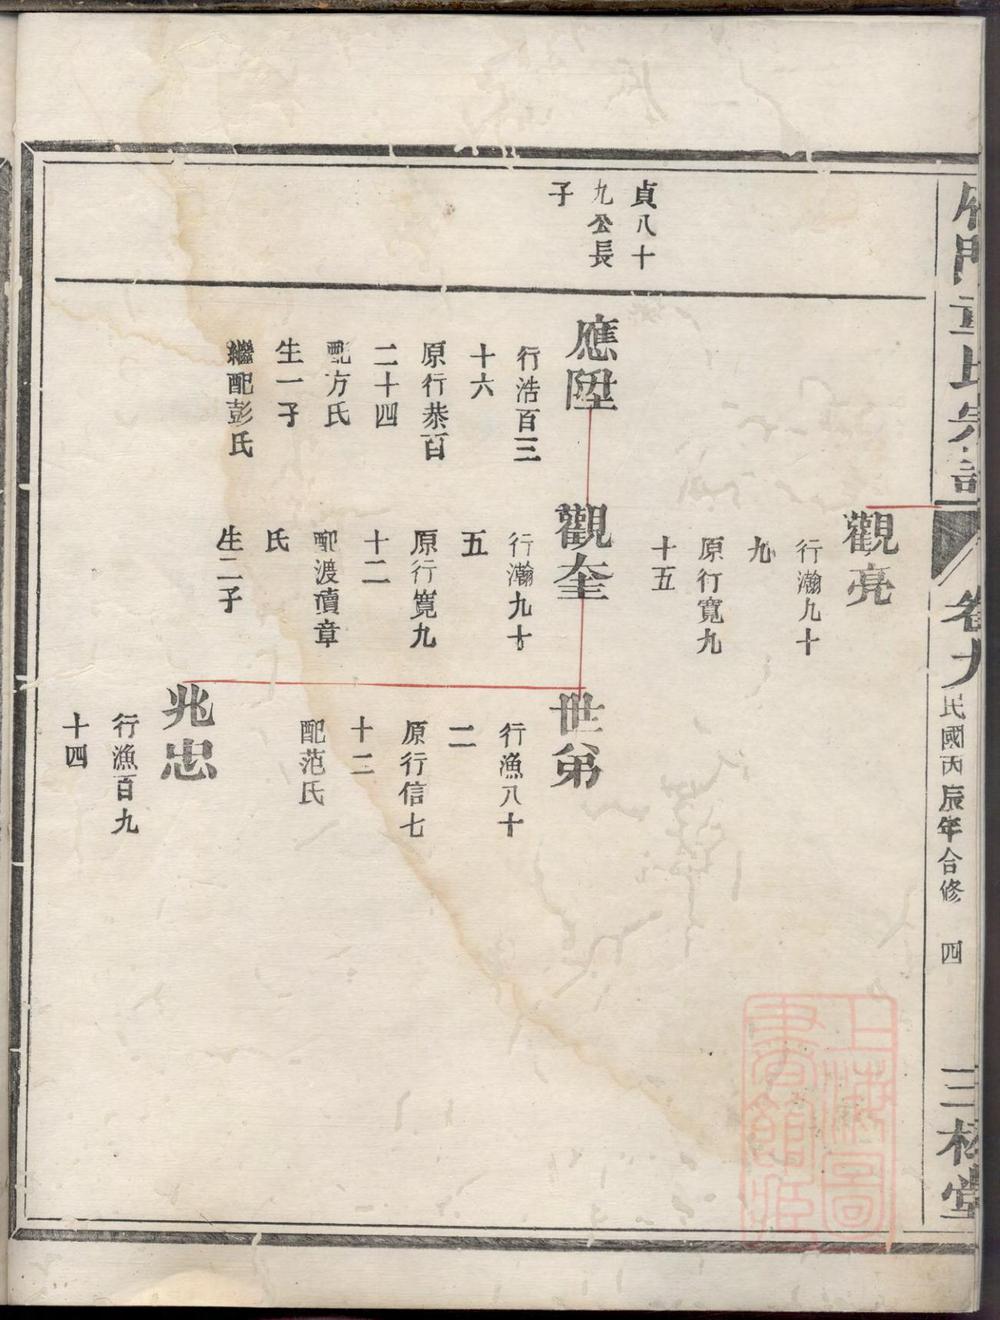 卷九
民國丙辰年合修 四
三槐堂
貞八十
九公長
子
觀亮
行瀚九十
九
原行寬九
十五
應陞
行浩百三
十六
原行恭百
二十四
配方氏
生一子
繼配彭氏
觀奎
行瀚九十
五
原行寬九
十二
配渡瀆章
氏
生二子
世弟
行漁八十
二
原行信七
十二
配范氏
兆忠
行漁百九
十四
上海圖
書館藏